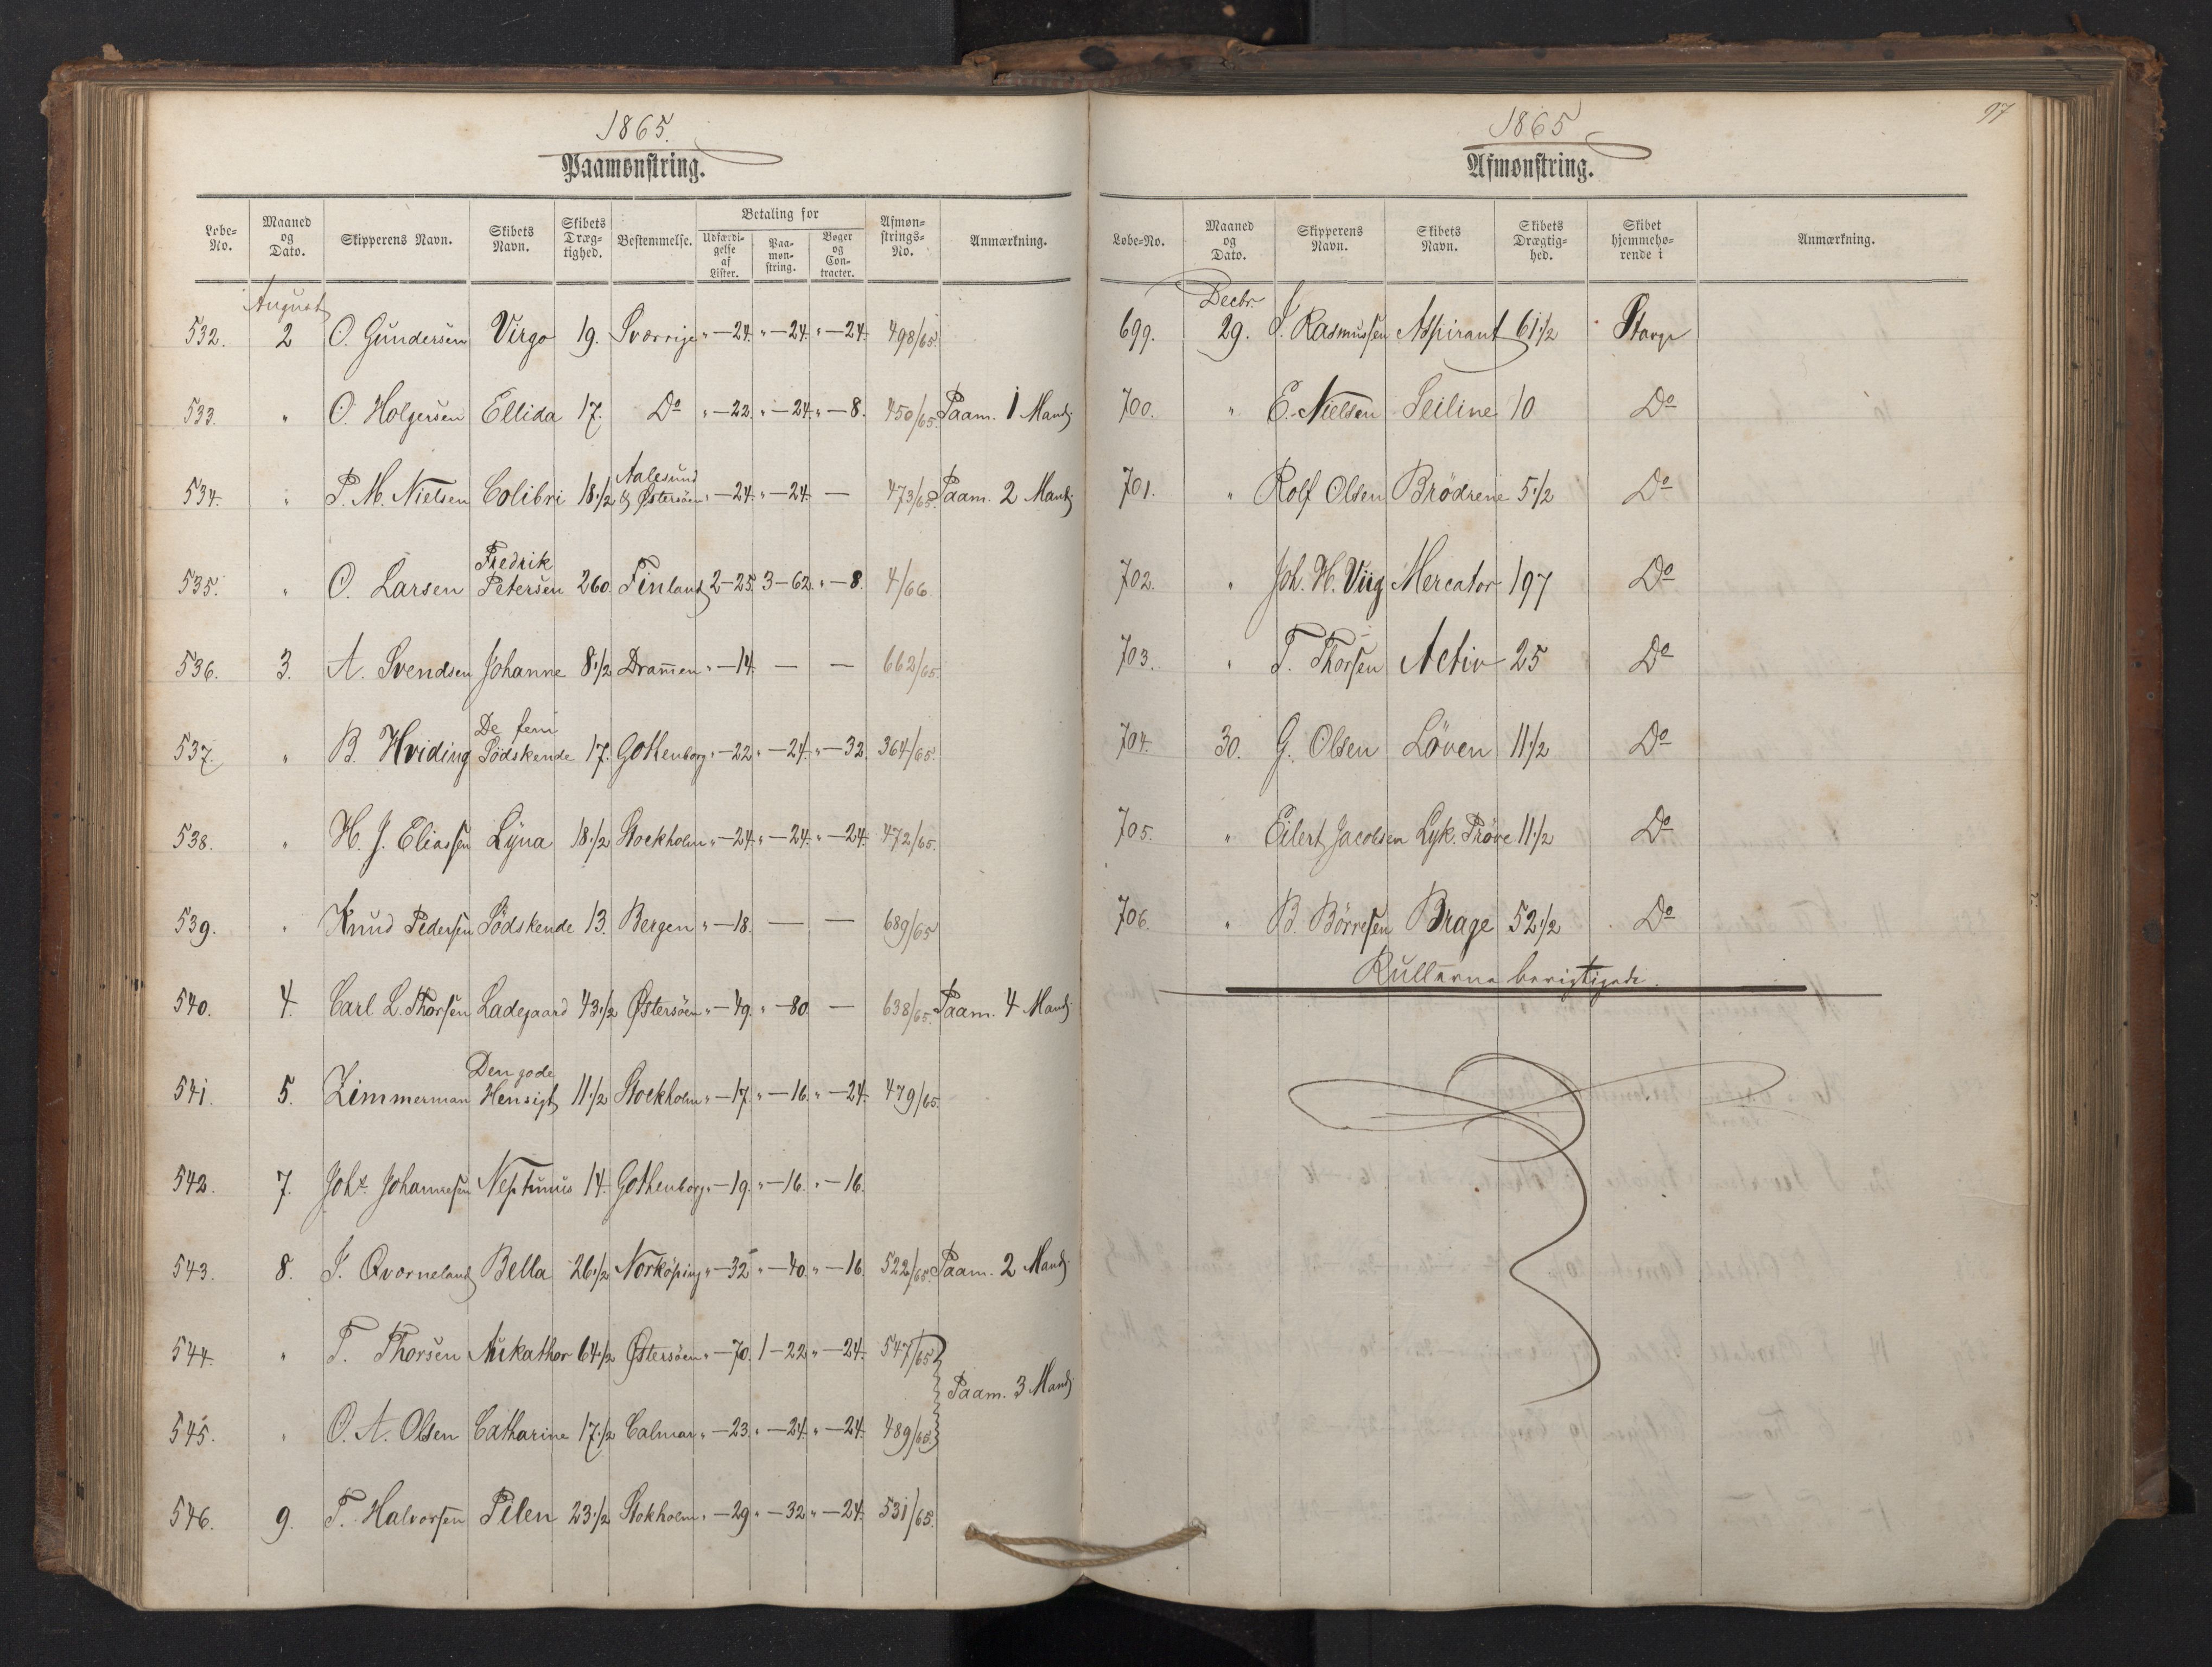 1865.
Paamønstring.
Løbe-No. Maaned og Dato. Skipperens Navn. Skibets Navn. Skibets Dræg-tighed. Bestemmelse. Betaling for Udfærdi-gelse af Lister. Paa-møn-string. Bøger og Con-tracter. Afmøn-strings-No. Anmærkning.
August
532. 2 O. Gundersen Virgo 19. Sverrige " — 24. " — 24. " — 24. 498/65.
533. " O. Holgersen Ellida 17. Do " — 22. " — 24. " — 8. 450/65. Paam. 1 Mand
534. " P. M. Nielsen Colibri 18 1/2 Aalesund & Østersøen " — 24. " — 24. — 473/65. Paam. 2 Mand
535. " O. Larsen Fredrik Petersen 260. Finland 2 — 25. 3 — 62. " — 8. 4/66
536. 3. A. Svendsen Johanne 8 1/2 Dram̄en " — 14. — — 662/65.
537. " B. Hviding De fem Södskende 17. Gothenborg " — 22 " — 24. " — 32. 364/65.
538. " H. J. Eliassen Lÿna 18 1/2 Stockholm " — 24. " — 24. " — 24. 472/65.
539. " Knud Pedersen Södskende 13. Bergen " — 18. — — 689/65
540. 4. Carl L. Thorsen Ladegaard 43 1/2 Østersöen " — 49. " — 80. — 638/65. Paam. 4 Mand
541. 5. Zimmerman Den gode Hensigt 11 1/2 Stockholm " — 17. " — 16. " — 24. 479/65.
542. 7. Johs. Johannesen Neptunus 14. Gothenborg " — 19. " — 16. " — 16.
543. 8. J. Qvorneland Bella 26 1/2 Norköping " — 32 " — 40. " — 16. 522/65. Paam. 2 Mand
544. " T. Thorsen 64 1/2 Østersöen " — 70. 1 — 22 " — 24. 547/65
Paam. 3 Mand
545. " O. A. Olsen Catharine 17 1/2 Calmar " — 23. " — 24. " — 24. 489/65.
546. 9. T. Halvorsen Pilen 23 1/2 Stokholm " — 29 " — 32 " — 24. 531/65.
97
1865
Afmønstring.
Løbe-No. Maaned og Dato. Skipperens Navn. Skibets Navn. Skibets Drægtig-hed. Skibet hjemmehø-rende i Anmærkning.
Decbr.
699. 29. J. Rasmussen Aspirant 61 1/2 Stavgr
700. " E. Nielsen Seiline 10 Do
701. " Rolf Olsen Brødrene 5 1/2 Do
702. " Joh. H. Virg Mercator 197 Do
703. " T. Thorsen Activ 25 Do
704. 30. G. Olsen Löven 11 1/2 Do
705. " Eilert Jacobsen Lyk. Pröve 11 1/2 Do
706. " B. Börresen Brage 52 1/2 Do
Rullerne berigtigede.